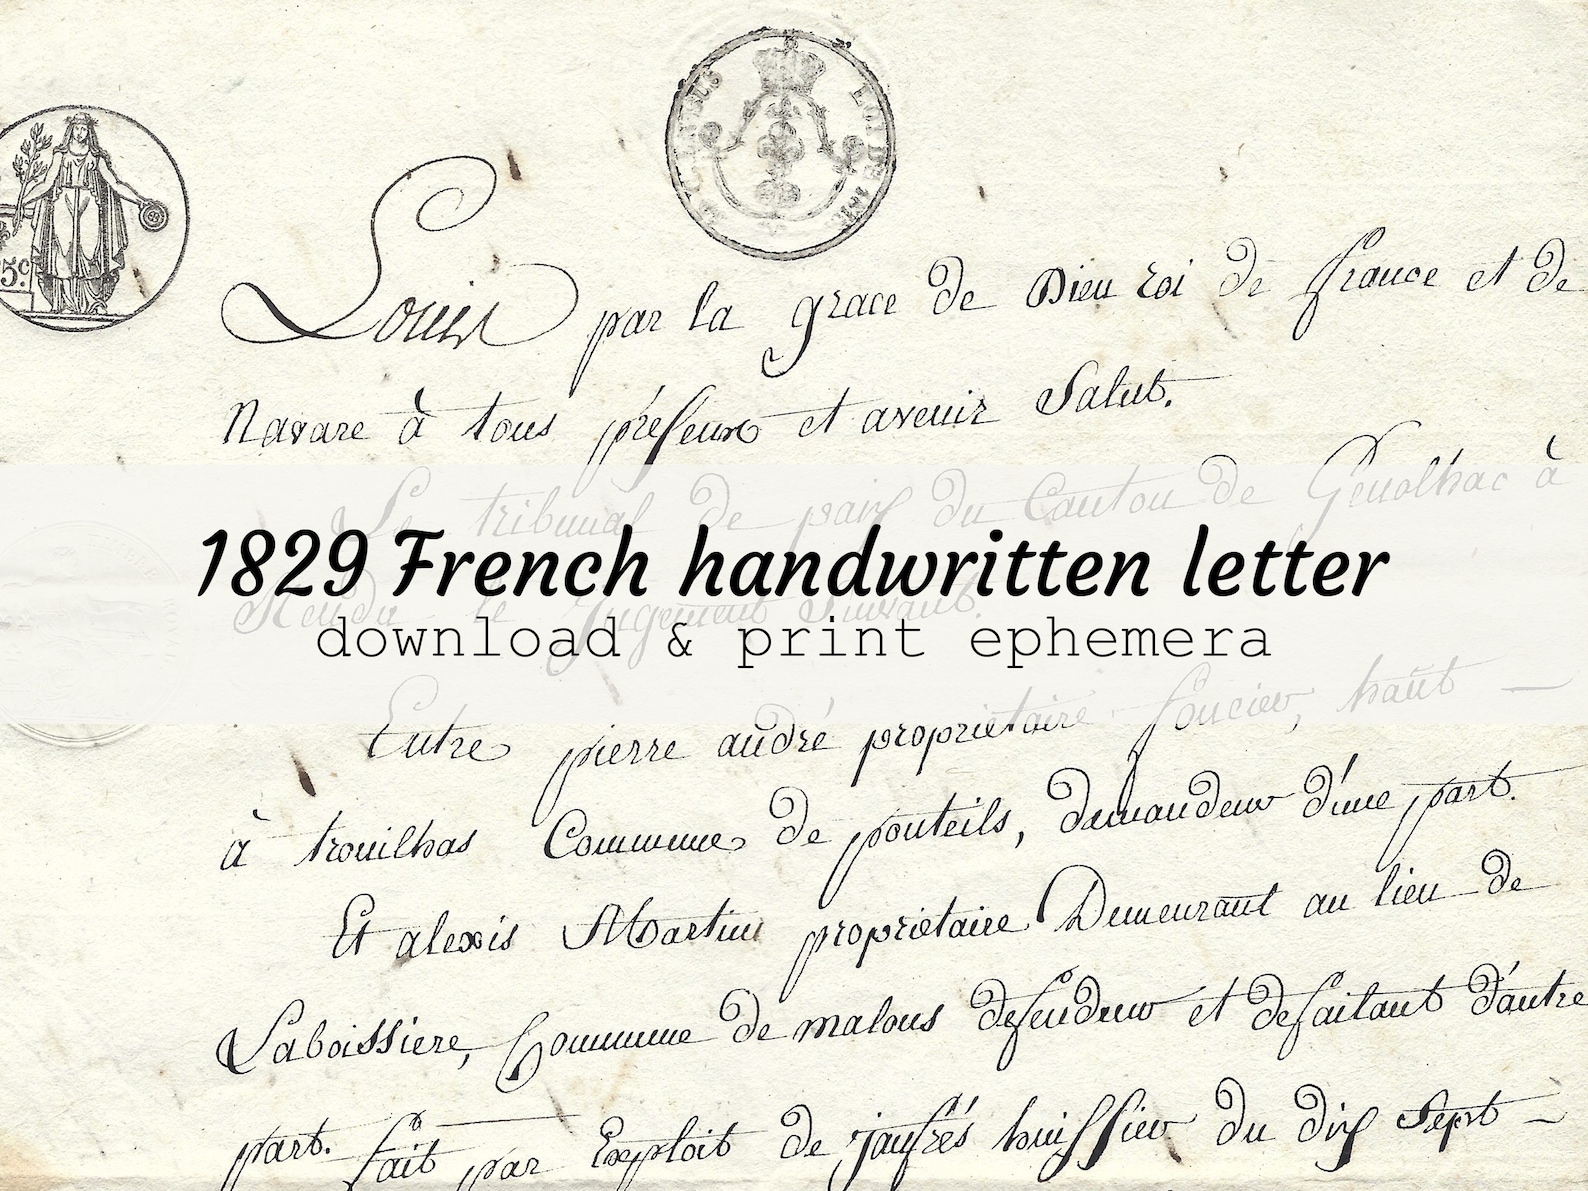 Louis par la grace de Dieu roi de france et de
Navare à tous présens et avenir Salut.
Le tribunal de paix du Canton de Genolhac à
Rendu le Jugement Suivant.
1829 French handwritten letter
download & print ephemera
Entre pierre andré proprietaire foncier, haut
à trouilhas Commune de ponteils, demandeur d'une part.
Et alexis Martin proprietaire Demeurant au lieu de
Laboissiere, Commune de malons defendeur et defaitant d'autre
part. fait par Exploit de jaufrés huissier du dix Sept
5c.